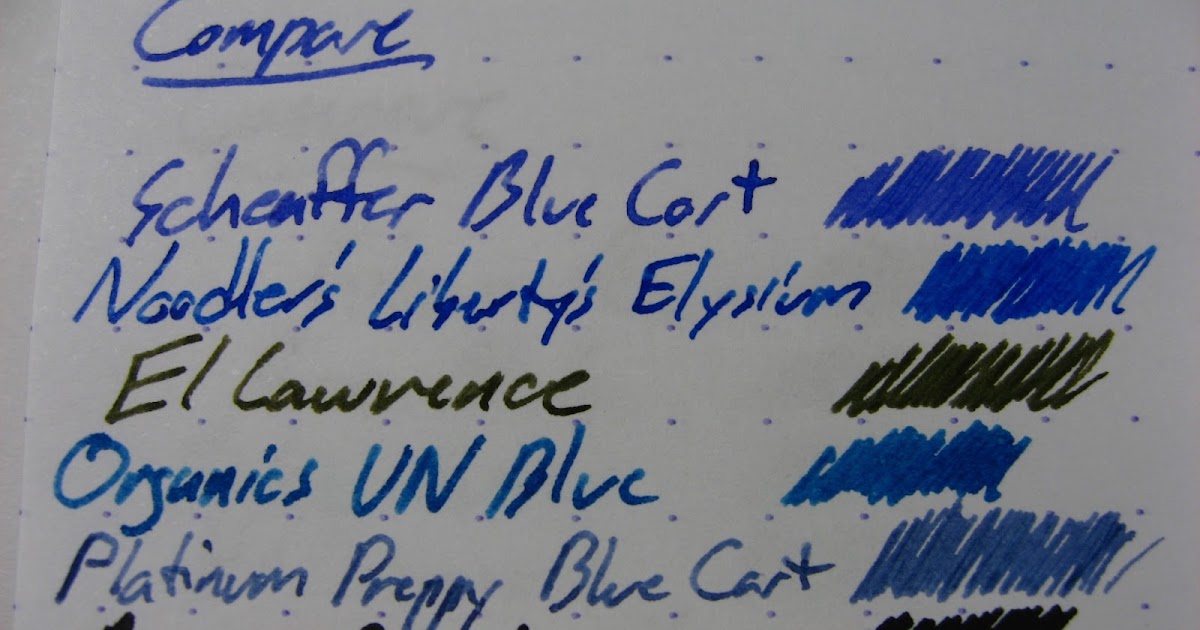 Compare
Scheaffer Blue Cart
Noodler's Liberty's Elysium
El Lawrence
Organics UN Blue
Platinum Preppy Blue Cart